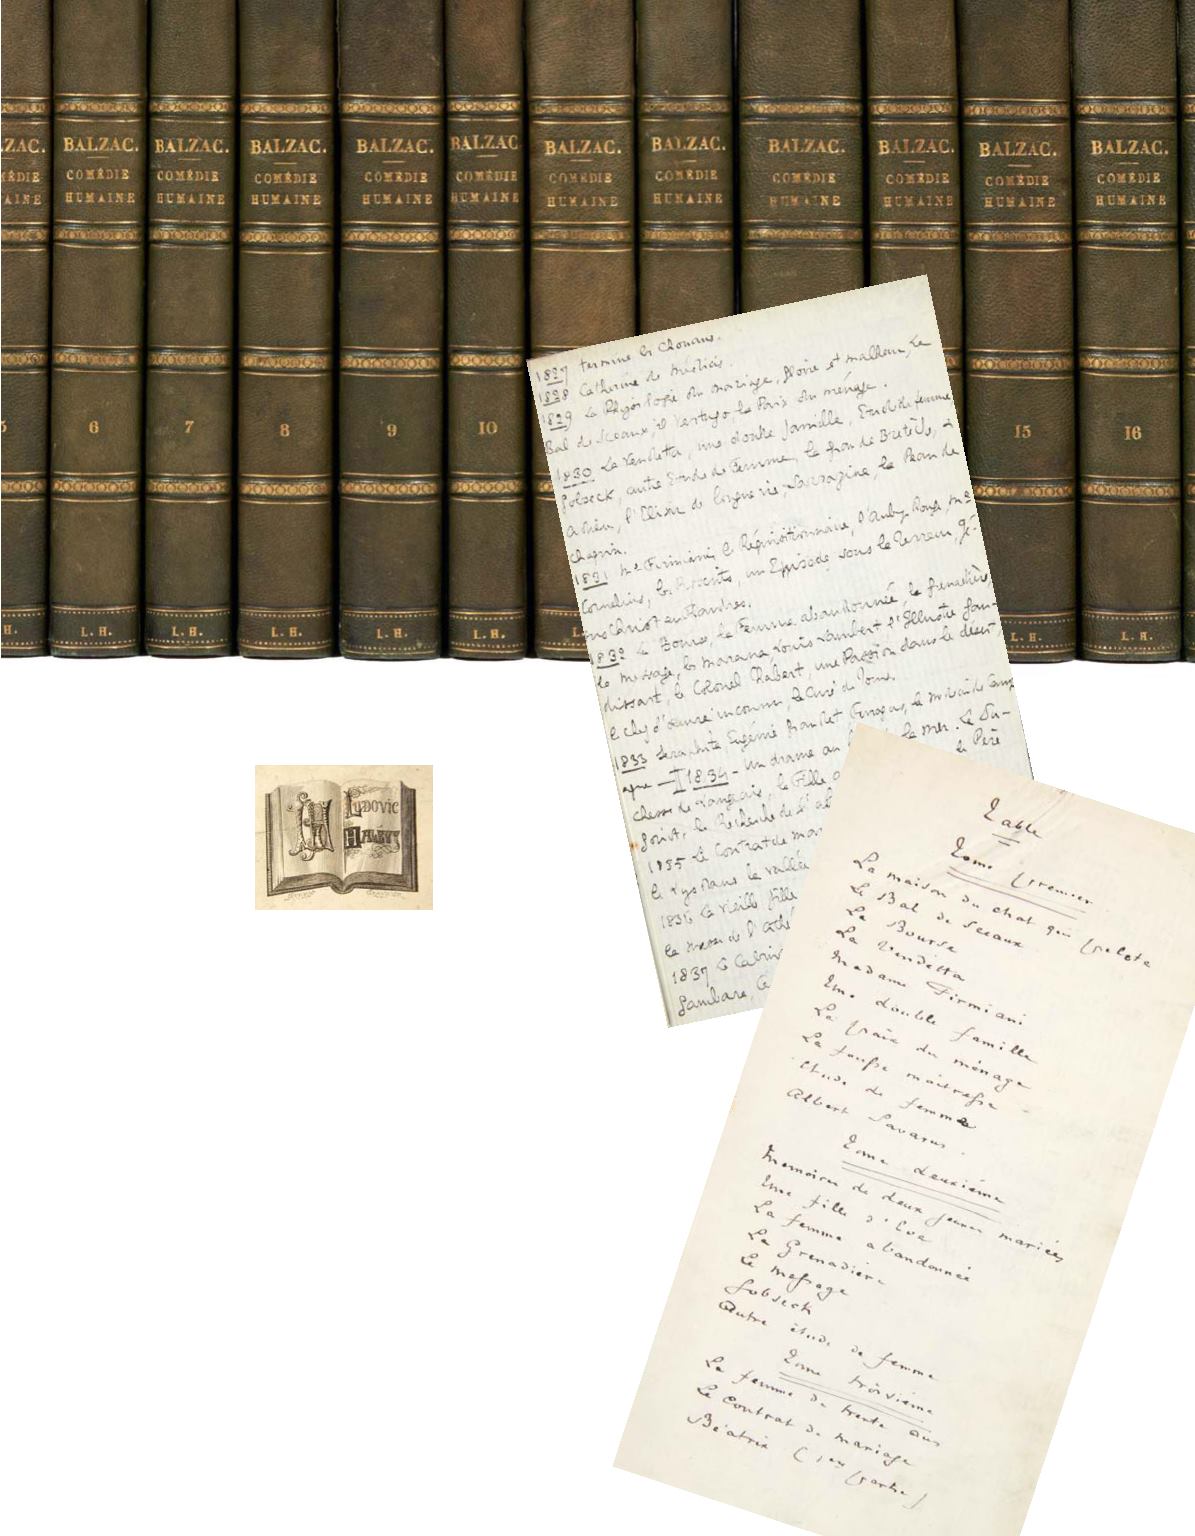 ZAC. BALZAC. BALZAC. BALZAC. BALZAC. BALZAC. BALZAC. BALZAC. BALZAC. BALZAC. BALZAC. BALZAC.
ÉDIE COMÉDIE COMÉDIE COMÉDIE COMÉDIE COMÉDIE COMÉDIE COMÉDIE COMÉDIE COMÉDIE COMÉDIE COMÉDIE
AINE HUMAINE HUMAINE HUMAINE HUMAINE HUMAINE HUMAINE HUMAINE HUMAINE HUMAINE HUMAINE HUMAINE
5 6 7 8 9 10 15 16
H. L. H. L. H. L. H. L. H. L. H. L. L. H. L. H.
1827 termine les Chouans.
1828 Catherine de Médicis.
1829 La Physiologie du mariage, Gloire et malheur, Le
Bal de Sceaux, el Verdugo, la Paix du ménage.
1830 La Vendetta, une double famille, Etude de femme
Gobseck, autre Etude de Femme, la
l'Elixir de longue vie, Sarrazine, la Peau de
Chagrin.
1831 Me Firmiani, le Réquisitionnaire, l'auberge Rouge, Me
Cornélius, les Proscrits, un Episode sous la Terreur, Jé-
sus Christ en Flandres.
1832 La Bourse, la Femme abandonnée, la Grenadière,
le message, les marana, Louis Lambert, l'Illustre Gau-
dissart, le Colonel Chabert, une Passion dans le désert,
le chef d'œuvre inconnu, le Curé de Tours.
1833 Seraphita, Eugénie Grandet, Ferragus, le médecin de Camp
agne — 1834 - un drame au la mer. La Du-
chesse de Langeais, la Fille a le Père
Goriot, la Recherche de l'ab
1835 Le Contrat de mar
le Lys dans la vallée
1836 La vieille fille
la messe de l'athé
1837 Le Cabin
Gambara, C
LH LUDOVIC
HALÉVY
Table
Tome premier
La maison du chat qui pelote
Le Bal de Sceaux
La Bourse
La Vendetta
Madame Firmiani
Une double famille
La paix du ménage
La fausse maîtresse
Etude de femme
Albert Savarus.
Tome deuxième
Memoires de deux jeunes mariées
Une fille d'Eve
La femme abandonnée
La Grenadière
Le message
Gobseck
Autre étude de femme
Tome troisième
La femme de trente ans
Le contrat de mariage
Béatrix (1ere partie)